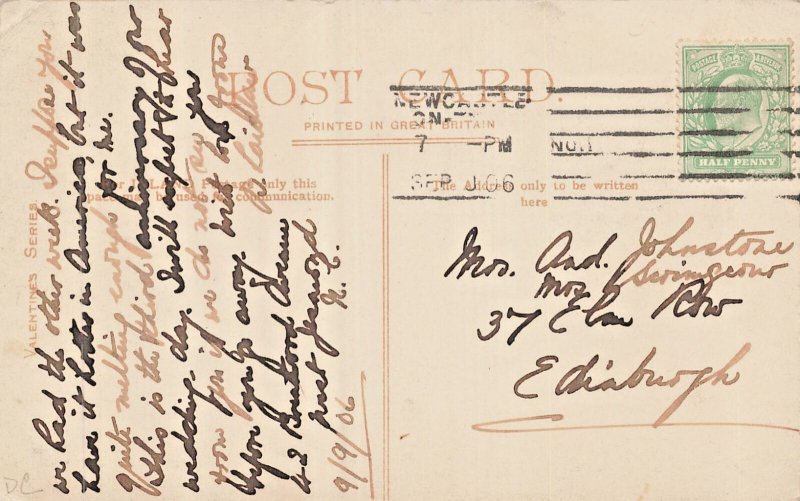 POST CARD.
PRINTED IN GREAT BRITAIN
NEWCASTLE
ON-T
7 -PM
NO.1
SEP 06
POSTAGE & REVENUE
HALF PENNY
For INLAND Postage only this
space may be used for communication.
The Address only to be written
here
VALENTINE'S SERIES.
we had the other week. I suppose you
have it hotter in America, but it was
quite melting enough for me.
This is the third anniversary of our
wedding day. I will expect to hear
from you if we do not see you
before you go away. With love from
42 Avenue
West Jesmond
N. C.
9/9/06
Mrs. And. Johnstone
37 Elm Row
Edinburgh
DC